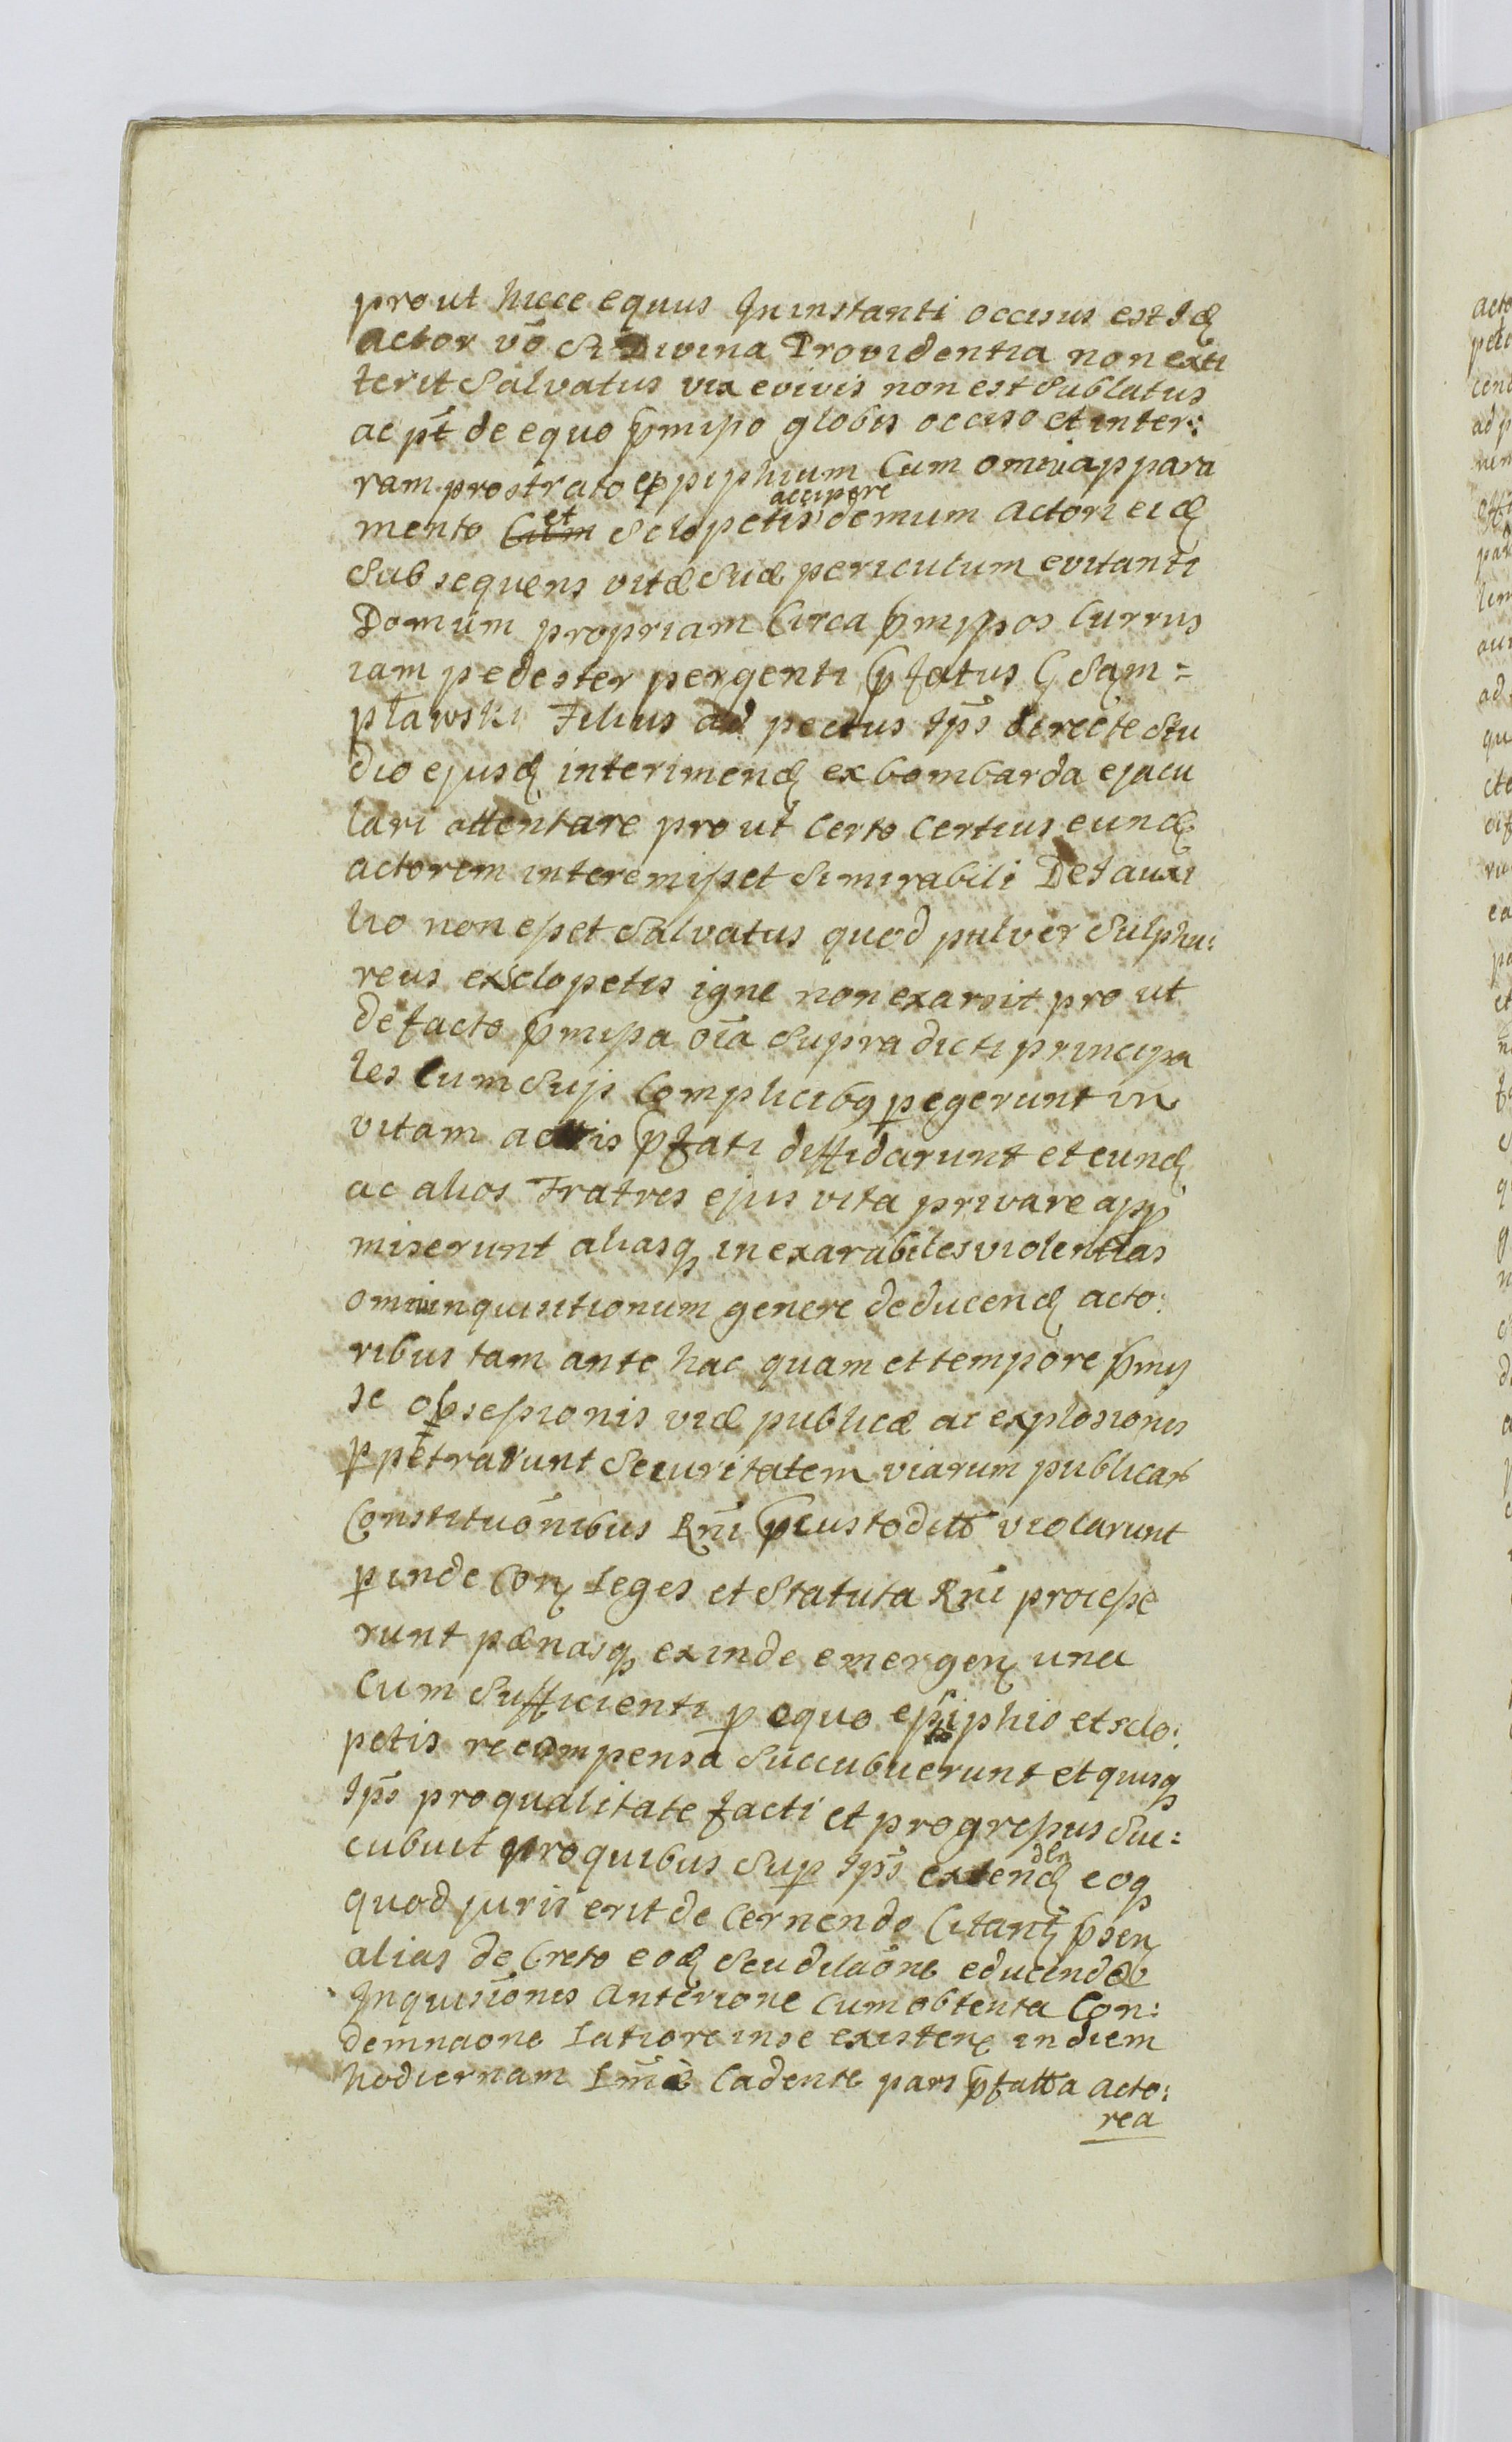 prout hicce equus Ininstanti occisus est Idq
Actor vō Si Divina Providentia non exti
terit Salvatus vix evivis non est Sublatus
ac pt̄ de equo pmisso globis occiso et inter:
ram prostrato eppiphium Cum omni appara
mento et Sclopetis accipere demum Actori eidq
Subsequens vitæ Suæ periculum evitanti
Domum propriam Circa pmissos Currus
iam pedester pergenti pfatus G Sam=
pławski Filius ad pectus Ips̄ directe Stu
dio ejusdq interimendq ex bombarda ejacu
lari attentare prout Certo Certius eundq
actorem interemisset Si mirabili Dei auxi
lio non esset Salvatus quod pulver Sulphu:
reus exsclopetis igne non exarsit prout
defacto pmissa oīa Supra dicti principa
les Cum Suis Complicibq pegerunt in
vitam actoris pfati diffidarunt et eundq
ac alios Fratres ejus vita privare app
miserunt aliasq inexarabiles violentias
omni inquisitionum genere deducendq acto:
ribus tam ante hac quam et tempore pmis
se obsessionis viæ publicæ ac explosionis
ppetrarunt Securitatem viarum publicar
Constituōnibus Rn̄i pcustodittā violarunt
pinde Conq Leges et Statuta Rn̄i processe
runt pænasq exinde emergenq una
Cum Sufficienti p equo eppiphio et sclo:
petis recompensa Succubuerunt et quisq
Ips̄ pro qualitate facti et progressus Suc:
cubuit pro quibus Sup Ips̄ extendendq eoq
quod juris erit de Cernendo Citantq psenq
alias deCreto eodq Seu dilaōne educendæ
Inquisiōnis Anteriore cum obtenta Con:
demnaone Latiore in se existenq in diem
hodiernam Lm̄e Cadente pars pfatta Acto:
rea